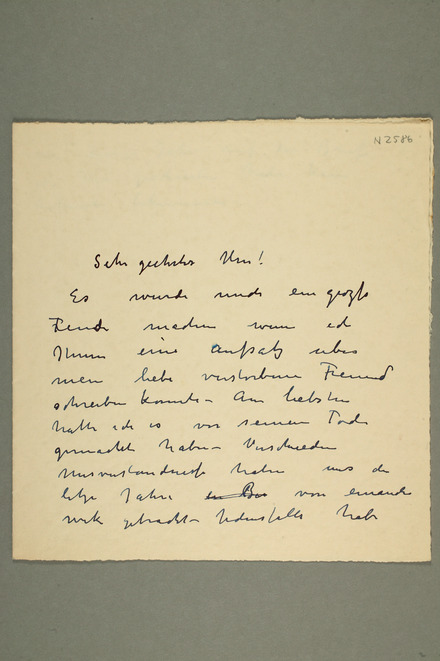 N 2586
Sehr geehrter Herr!
Es wurde mich ein große
Freude machen wenn ich
Ihnen eine Aufsatz uber
mein liebe verstorbene Freund
schreiben konnte – Am liebsten
hatte ich es vor seinem Tode
gemacht haben – Verschieden
Missverstandnisse haben uns die
letze Jahre von einander
weck gebracht – Jedenfalls habe